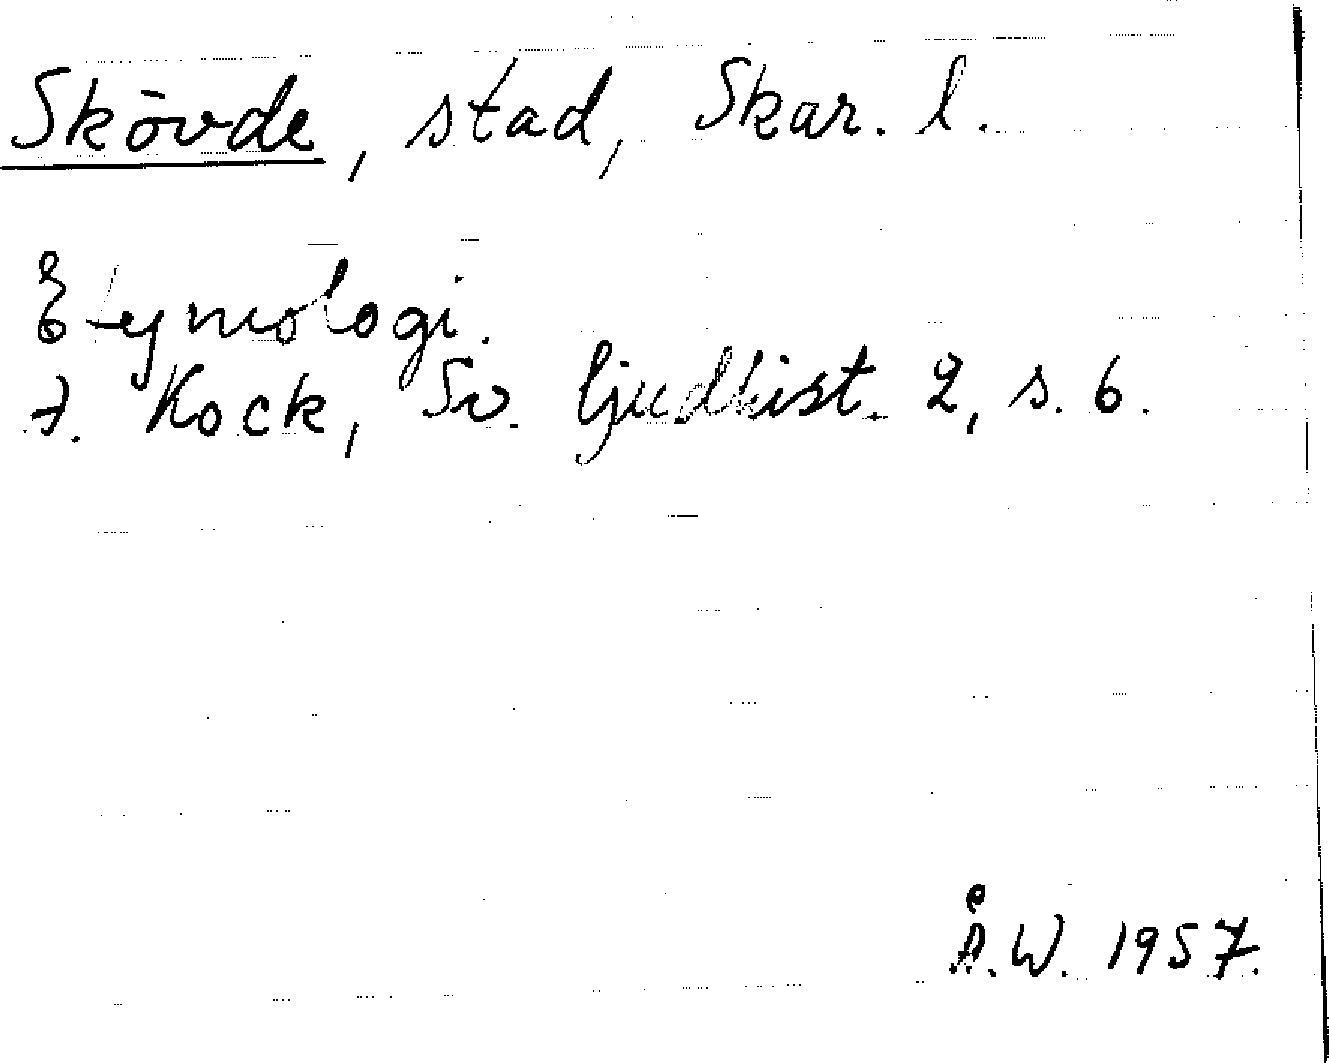 Skövde, stad, Skar. l.
Etymologi.
A. Kock, Sv. ljudhist. 2, s. 6.
Å.W. 1957.